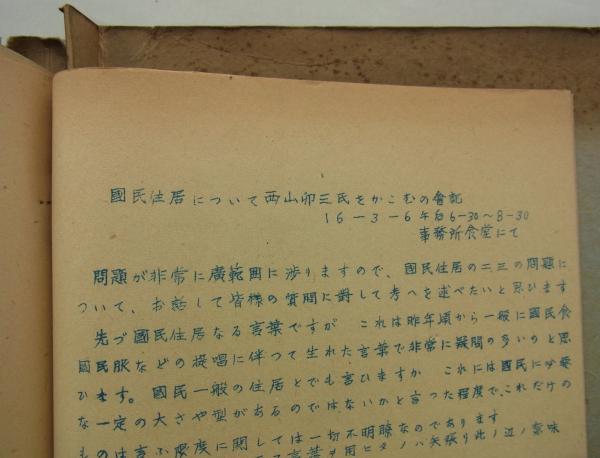 國民住居について西山卯三氏をかこむの會記
16-3-6 午后6-30~8-30
事務所食堂にて
問題が非常に廣範囲に渉りますので、國民住居の二三の問題に
ついて、お話して皆様の質問に對して考へを述べたいと思ひます
先づ國民住居なる言葉ですが これは昨年頃から一般に國民食
國民服などの提唱に伴つて生れた言葉で非常に疑問の多いのと思
ひます。國民一般の住居とでも言ひますか これには國民に必要
な一定の大さや型があるのではないかと言った程度で、これだけの
ものは言ふ 度に関しては一切不明瞭なのであります
言葉ヲ用ヒタノハ矢張り此ノ辺ノ意味